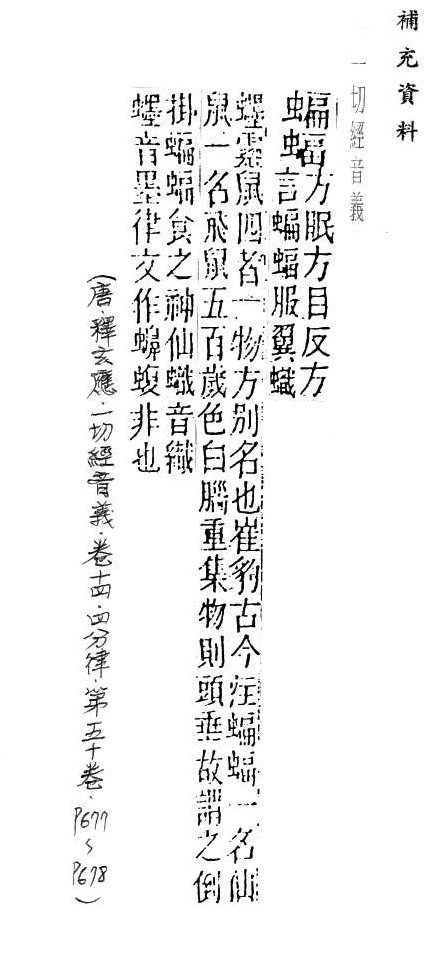 補充資料
一切經音義
蝙蝠方眠方目反方
言蝙蝠服翼蟙
䘃靈鼠四者一物方別名也崔豹古今注蝙蝠一名仙
鼠一名飛鼠五百歲色白腦重集物則頭垂故謂之倒
掛蝙蝠食之神仙蟙音織
䘃音墨律文作蝮非也
(唐.釋玄應.一切經音義.卷十四.四分律.第五十卷.P677~P678)